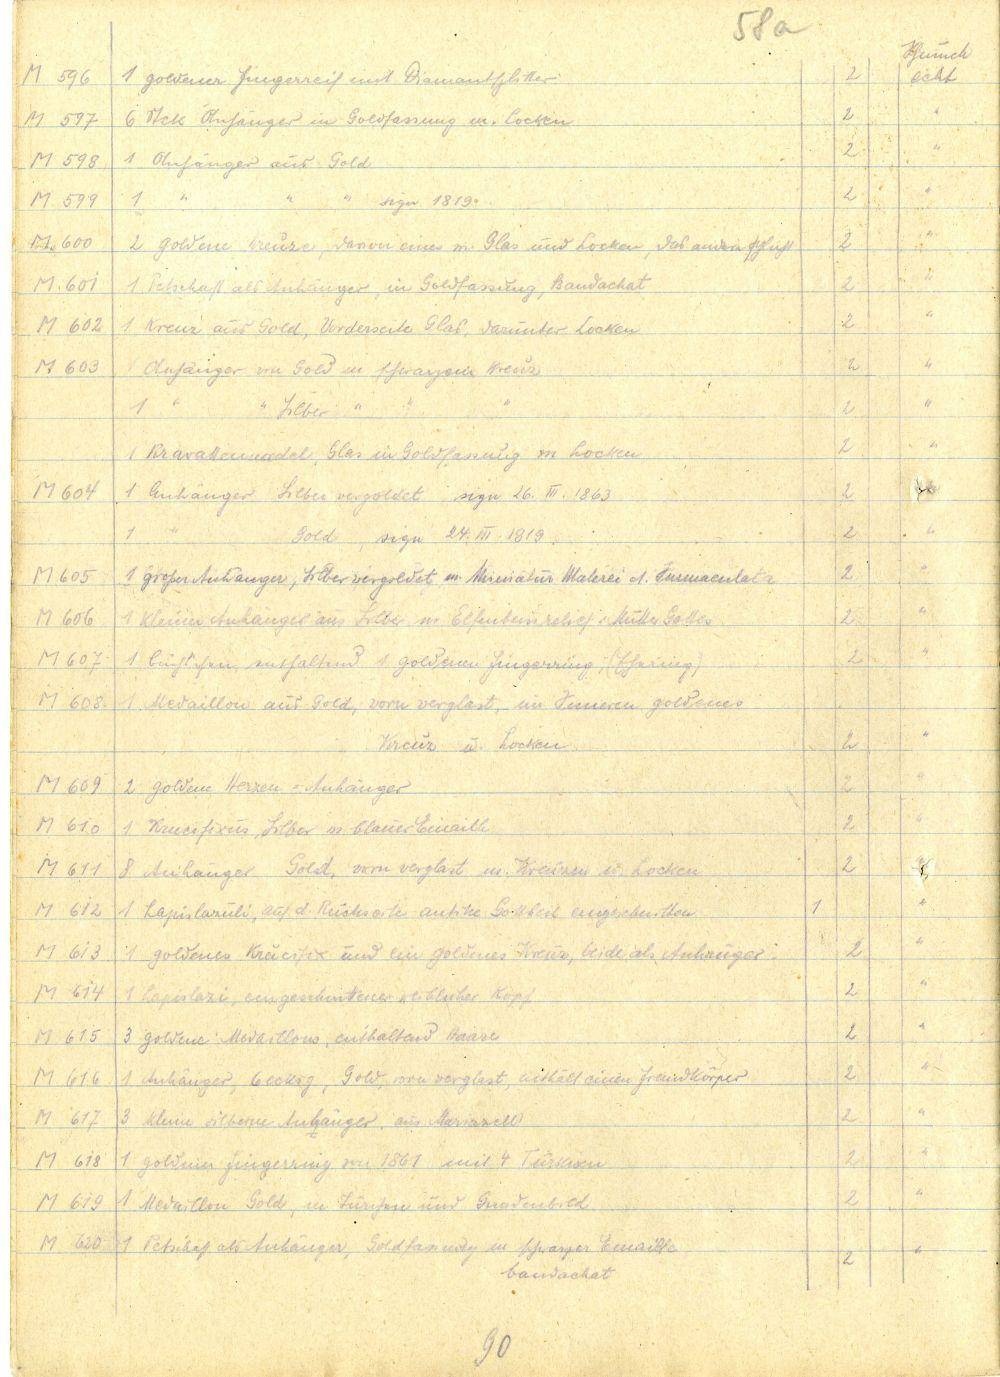 58a
M 596 1 goldener Fingerreif mit Diamantsplitter 2 echt
M 597 6 Stck Anhänger in Goldfassung m. Locken 2 "
M 598 1 Anhänger aus Gold 2 "
M 599 1 " " " sign 1819. 2 "
M. 600 2 goldene Kreuze, davon eines m. Glas und Locken, das andere schlicht 2 "
M. 601 1 Petschaft als Anhänger, in Goldfassung, Bandachat 2 "
M 602 1 Kreuz aus Gold, Vorderseite Glas, darunter Locken 2 "
M 603 1 Anhänger von Gold m schwarzem Kreuz 2 "
1 " " Silber " " " 2 "
1 Kravattennadel, Glas in Goldfassung m Locken 2 "
M 604 1 Anhänger Silber vergoldet sign 26. III. 1863 2 "
1 " Gold, sign 24. III. 1819. 2 "
M 605 1 großer Anhänger, Silber vergoldet, m. Miniatur Malerei d. Immaculata 2 "
M 606 1 kleiner Anhänger aus Silber m Elfenbeinrelief: Mutter Gottes 2 "
M 607 1 enthaltend 1 goldenen Fingerring, (Ehering) 2 "
M 608. 1 Medaillon aus Gold, vorn verglast, im Inneren goldenes
Kreuz u. Locken 2 "
M 609 2 goldene Herzen-Anhänger 2 "
M 610 1 Kruzifixus, Silber m blauer Emaille 2 "
M 611 8 Anhänger Gold, vorn verglast m. Kreuzen u. Locken 2 "
M 612 1 Lapislazuli, auf d. Rückseite antike Gottheit eingeschnitten 1 "
M 613 1 goldenes Krucifix und ein goldenes Kreuz, beide als Anhänger. 2 "
M 614 1 Lapislazi, eingeschnittener weiblicher Kopf 2 "
M 615 3 goldene Medaillons, enthaltend Haare 2 "
M 616 1 Anhänger, 6eckig, Gold, vorn verglast, enthält einen Fremdkörper 2 "
M 617 3 kleine silberne Anhänger, aus Mariazell 2 "
M 618 1 goldener Fingerring von 1861 mit 4 Türkisen 2 "
M 619 1 Medaillon Gold, m und Gnadenbild 2 "
M 620 1 Petschaft als Anhänger, Goldfassung m schwarzer Emaille
bandachat 2 "
90